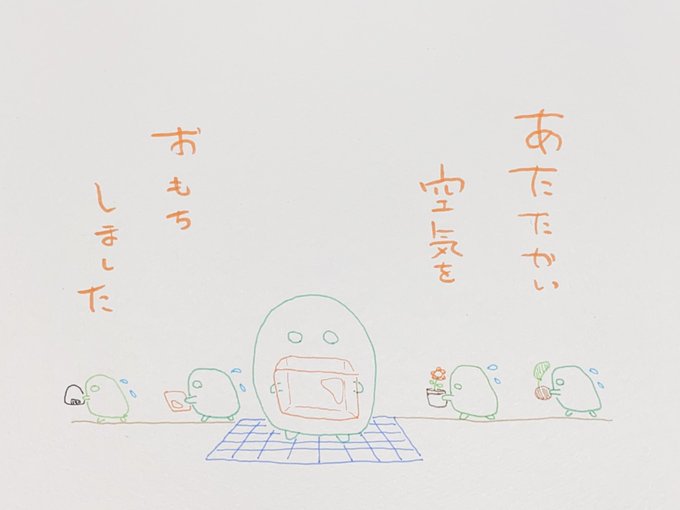 あたたかい
空気を
おもち
しました